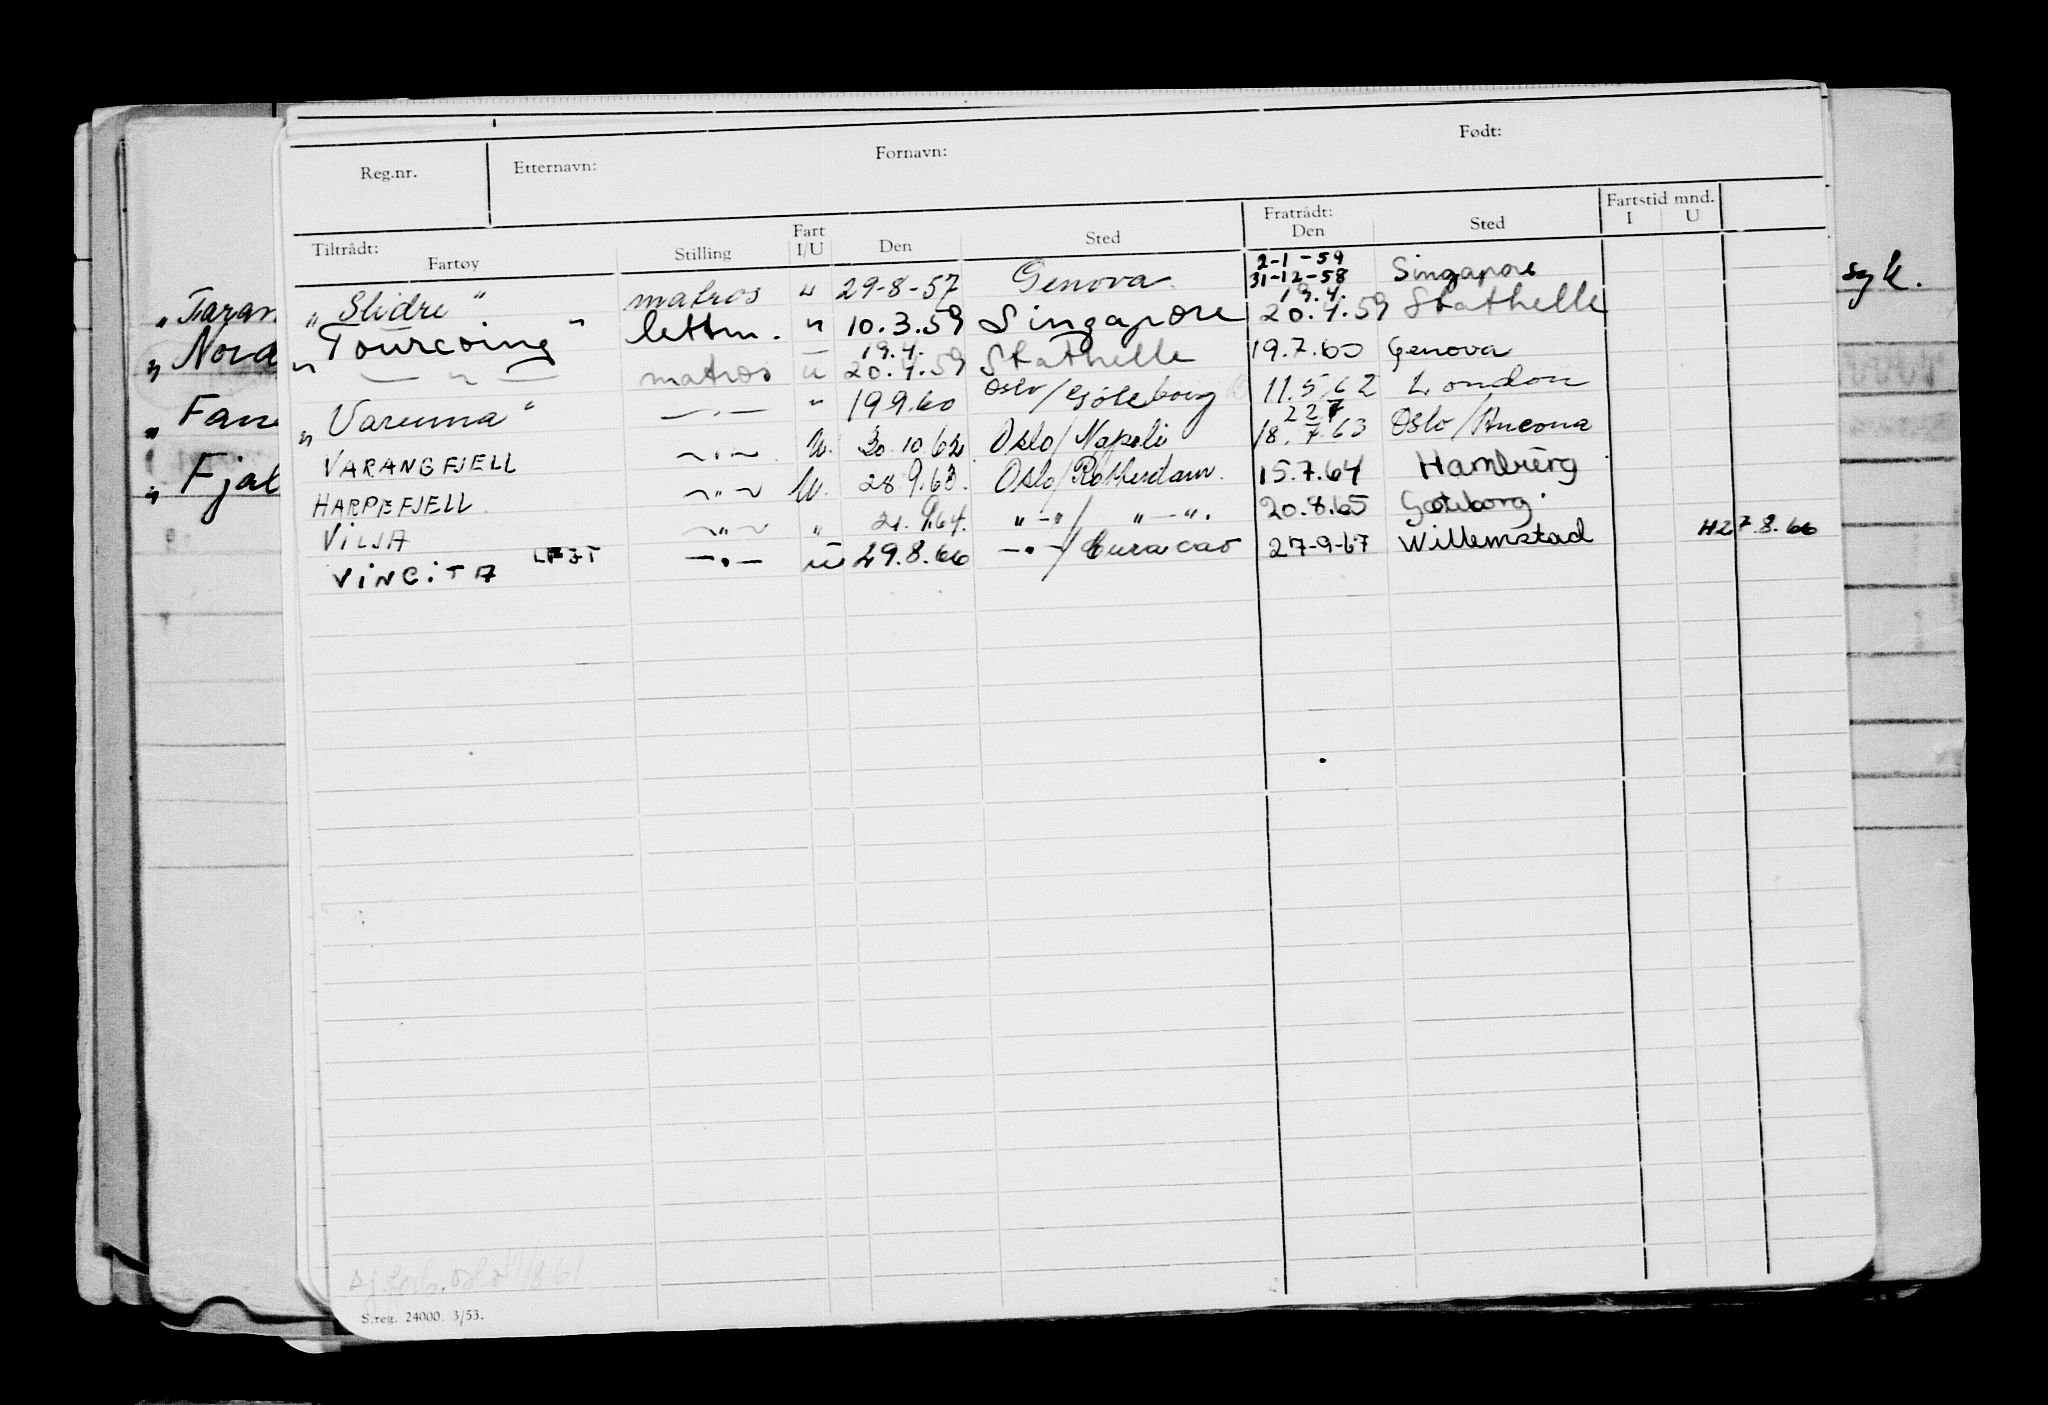 Reg.nr. Etternavn: Fornavn: Født:
Tiltrådt: Fartøy Stilling Fart I/U Den Sted Fratrådt: Den Sted Fartstid mnd. I U
"Slidre" matros " 29-8-57 Genova 2-1-59 31-12-58 Singapore
"Tourcoing" lettm. " 10.3.59 Singapore 19.4. 20.4.59 Stathelle
" — " — matros u 19.4. 20.4.59 Stathelle 19.7.60 Genova
"Varenna" — " — " 19.9.60 Oslo/Göteborg 11.5.62 London
VARANGFJELL — " — U. 30.10.62 Oslo/Napoli 22.7 18.7.63 Oslo/Ancona
HARPEFJELL — " — U. 28.9.63. Oslo/Rotterdam. 15.7.64 Hamburg
VILJA — " — " 21.9.64. " — " / " — ". 20.8.65 Gøteborg.
VINCITA LFJT — " — U 29.8.66 — " — /Curacao 27-9-67 Willemstad H27.8.66
S.reg. 24000. 3/53.
"Taran
"Nord
"Fan
"Fjal
syk.